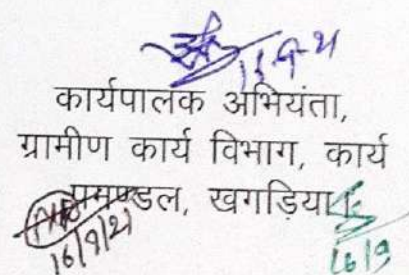 11-9-21
कार्यपालक अभियंता,
ग्रामीण कार्य विभाग, कार्य
प्रमण्डल, खगड़िया।
16/9/21
16/9